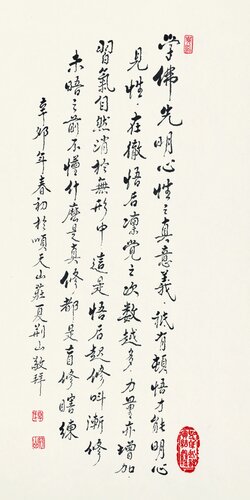 学佛先明心性之真意義。誠有頓悟才能明心
見性。在徹悟后凜覺之次数越多力量亦增加
習氣自然消於無形中這是悟后起修叫漸修
未晤之前不懂什麼是真修都是盲修瞎練
辛卯年春初於順天山莊夏荆山敬拜